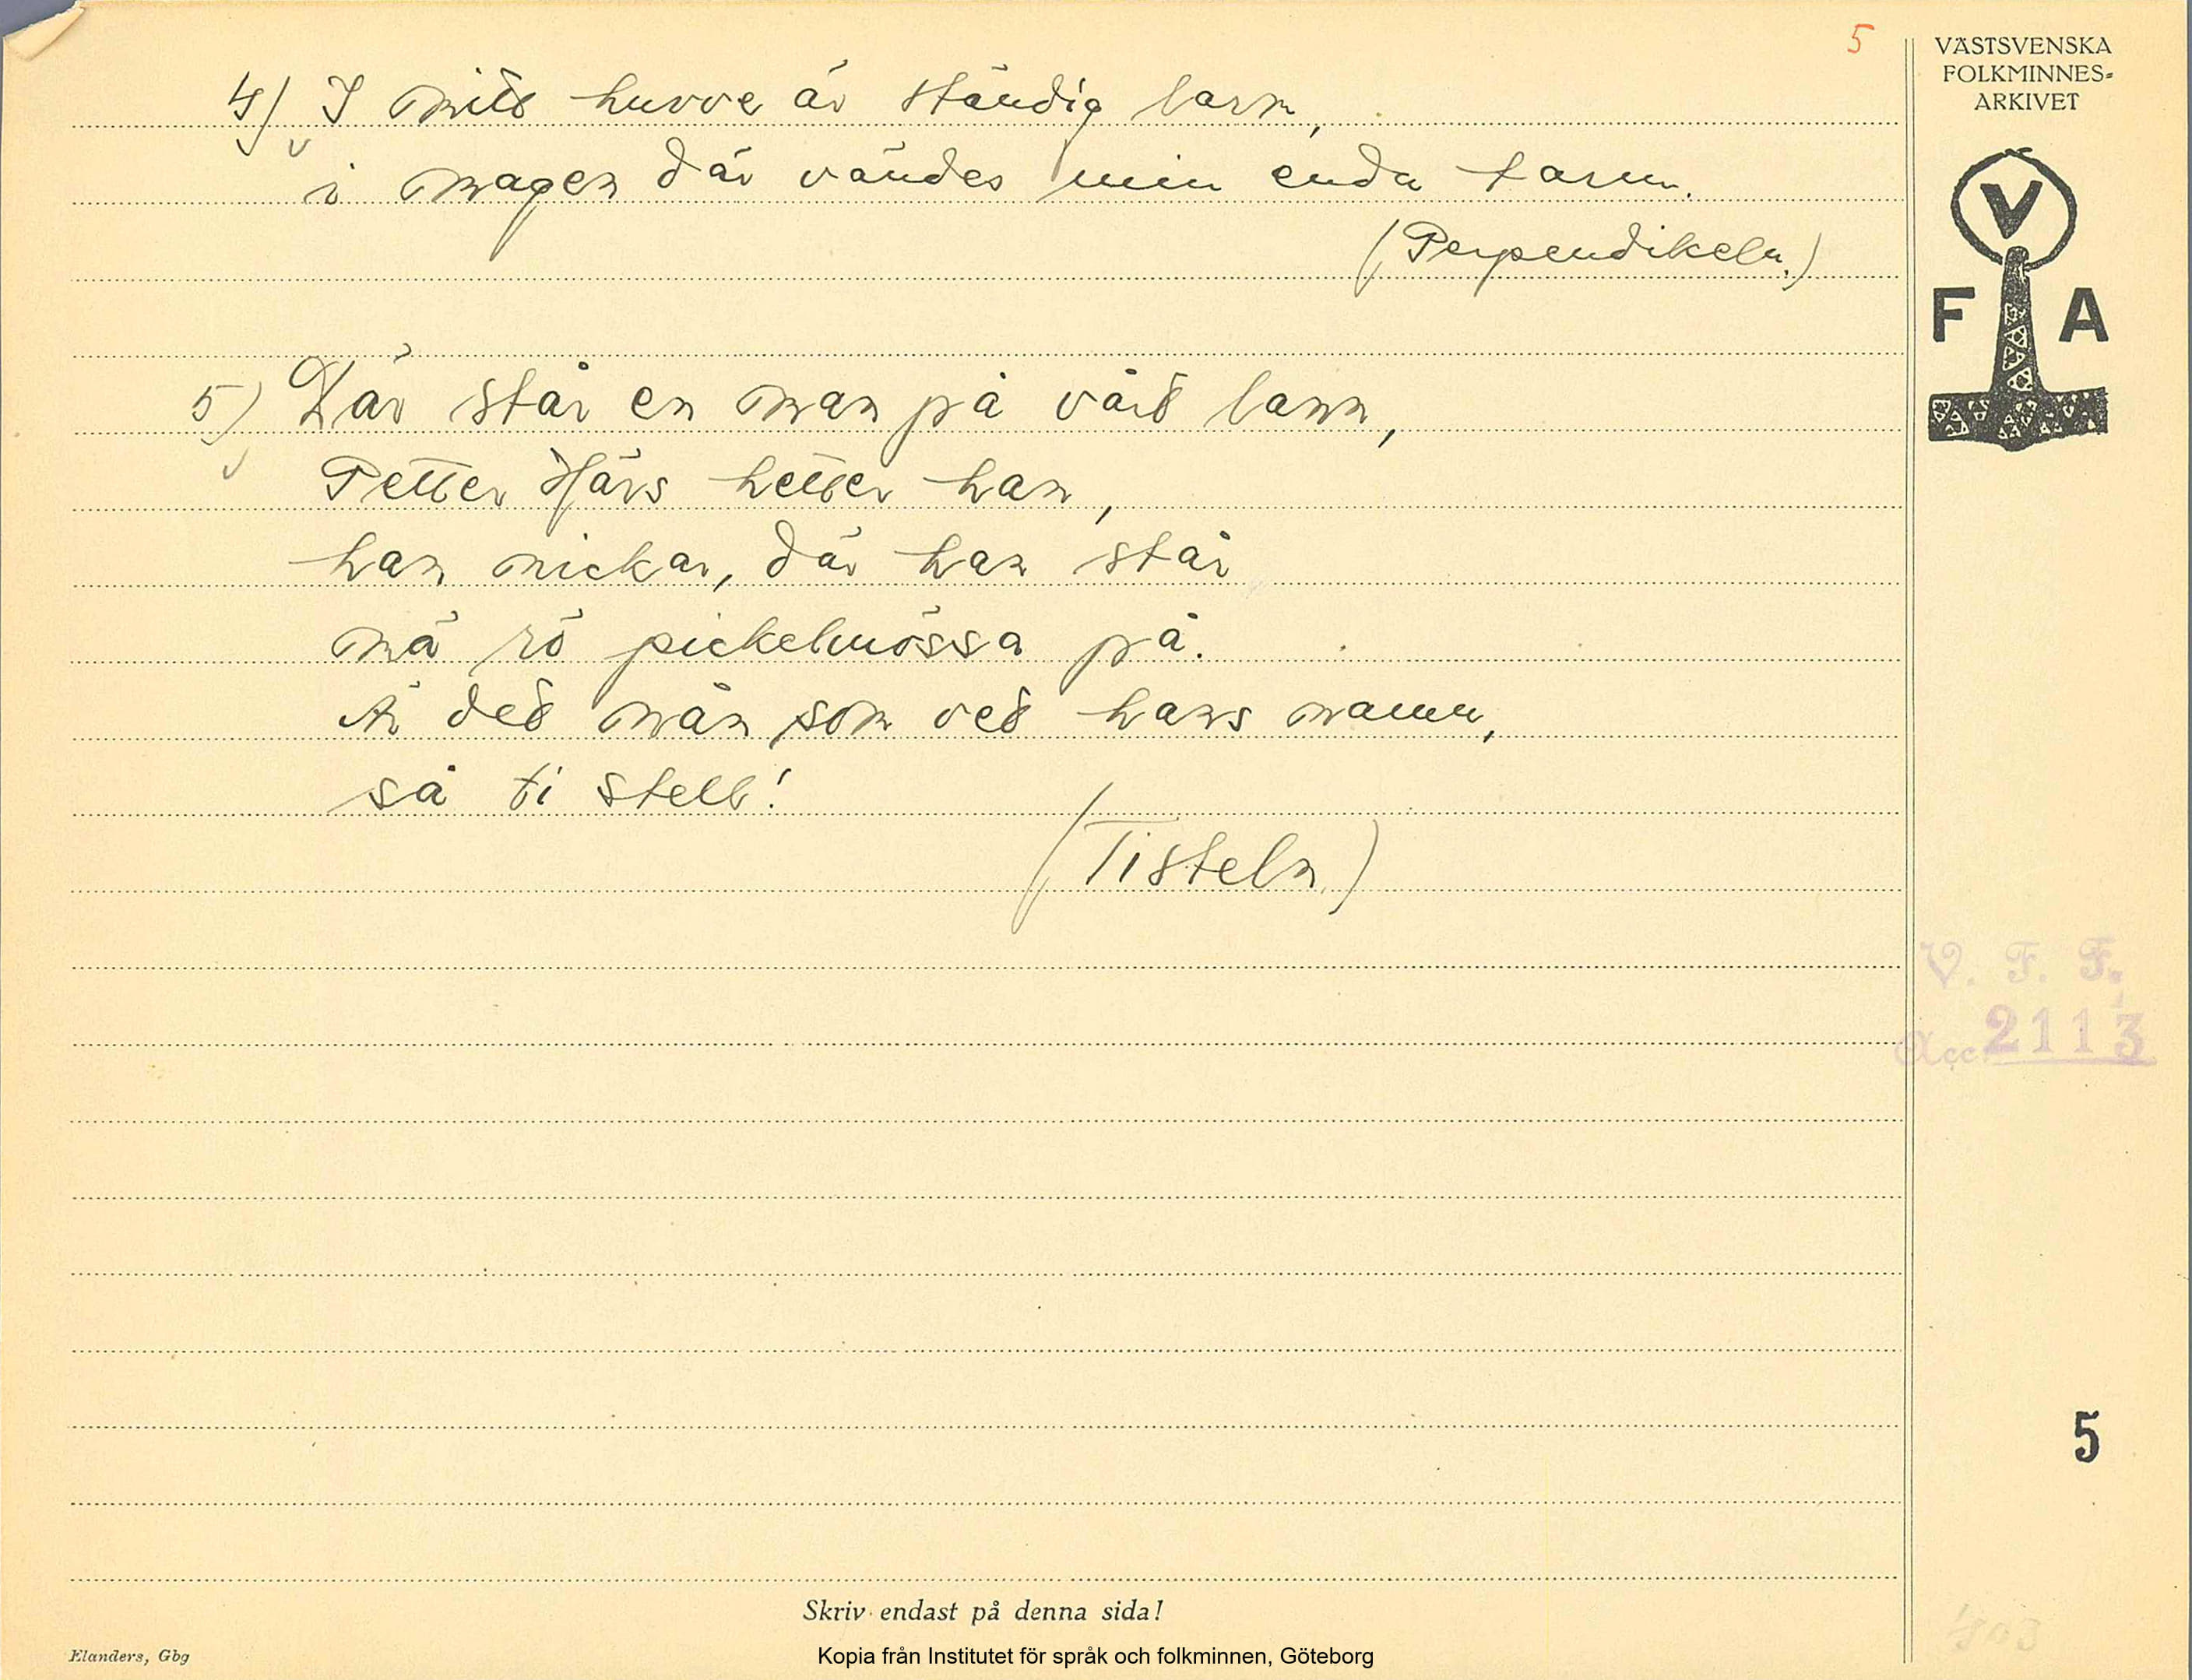 5
VÄSTSVENSKA
FOLKMINNES-
ARKIVET
V
F A
4) I mitt huvve är ständig larm,
i magen där vändes min enda tarm.
(Perpendikeln.)
5) Där står en man på vårt lann,
Petter Härs hetter han,
han nickar, där han står
mä rö pickelmössa på.
Är det nån som vet hans namn,
så ti stell!
(Tisteln.)
V. F. F.
Acc. 2113
5
Skriv endast på denna sida!
Elanders, Gbg
Kopia från Institutet för språk och folkminnen, Göteborg